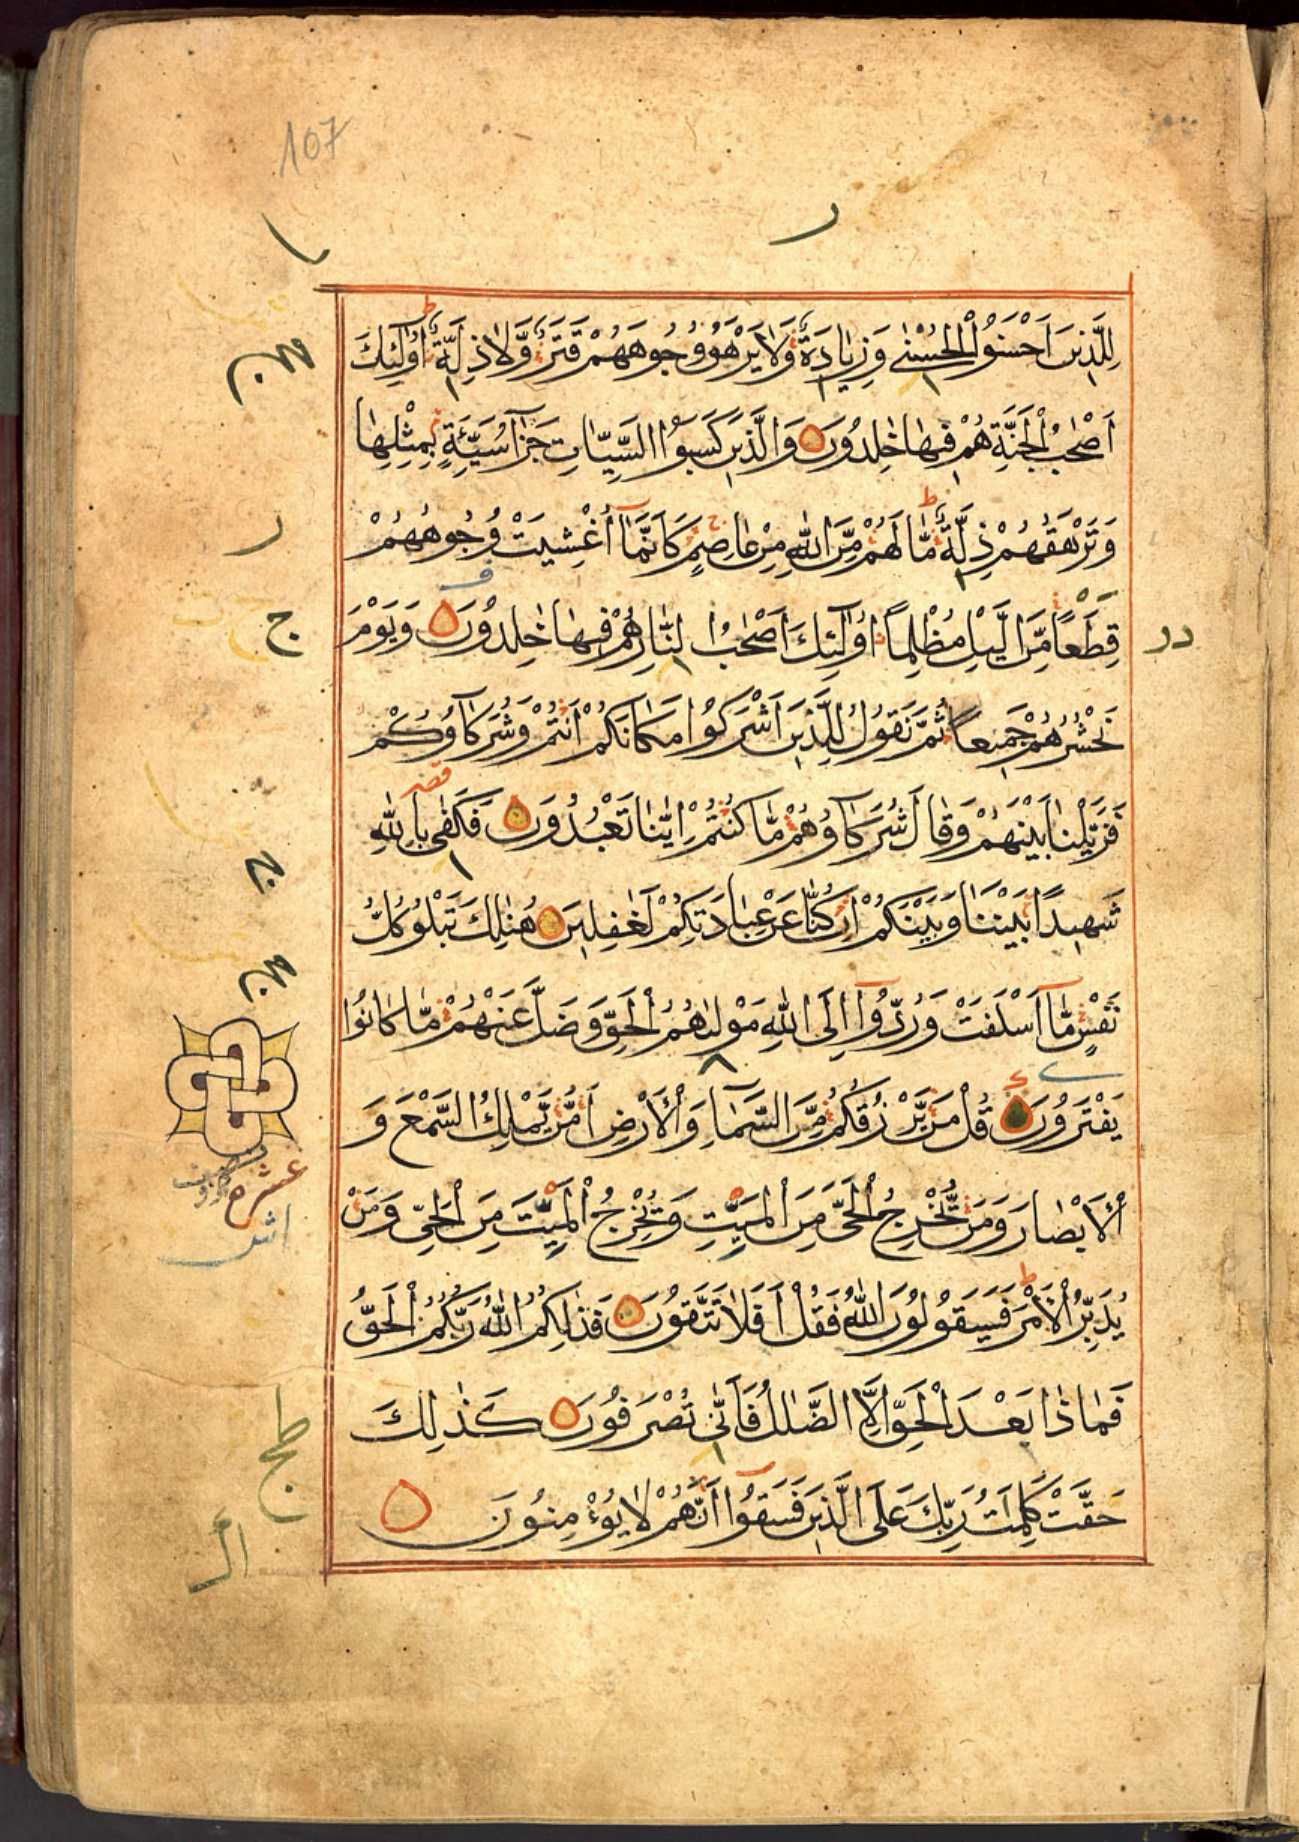 107
لِلَّذِينَ اَحْسَنُوا الْحُسْنٰى وَزِيَادَةٌ وَلَا يَرْهَقُ وُجُوهَهُمْ قَتَرٌ وَّلَا ذِلَّةٌ اُولٰٓئِكَ
اَصْحٰبُ الْجَنَّةِ هُمْ فِيهَا خٰلِدُونَ وَالَّذِينَ كَسَبُوا السَّيِّاٰتِ جَزَآءُ سَيِّئَةٍ بِمِثْلِهَا
وَتَرْهَقُهُمْ ذِلَّةٌ مَّا لَهُمْ مِّنَ اللّٰهِ مِنْ عَاصِمٍ كَاَنَّمَآ اُغْشِيَتْ وُجُوهُهُمْ
قِطَعًا مِّنَ الَّيْلِ مُظْلِمًا اُولٰٓئِكَ اَصْحٰبُ النَّارِ هُمْ فِيهَا خٰلِدُونَ وَيَوْمَ
نَحْشُرُهُمْ جَمِيعًا ثُمَّ نَقُولُ لِلَّذِينَ اَشْرَكُوا مَكَانَكُمْ اَنْتُمْ وَشُرَكَآؤُكُمْ
فَزَيَّلْنَا بَيْنَهُمْ وَقَالَ شُرَكَآؤُهُمْ مَّا كُنْتُمْ اِيَّانَا تَعْبُدُونَ فَكَفٰى بِاللّٰهِ
شَهِيدًا بَيْنَنَا وَبَيْنَكُمْ اِنْ كُنَّا عَنْ عِبَادَتِكُمْ لَغٰفِلِينَ هُنَالِكَ تَبْلُو كُلُّ
نَفْسٍ مَّآ اَسْلَفَتْ وَرُدُّوٓا اِلَى اللّٰهِ مَوْلٰىهُمُ الْحَقِّ وَضَلَّ عَنْهُمْ مَّا كَانُوا
يَفْتَرُونَ قُلْ مَنْ يَّرْزُقُكُمْ مِّنَ السَّمَآءِ وَالْاَرْضِ اَمَّنْ يَّمْلِكُ السَّمْعَ وَ
الْاَبْصَارَ وَمَنْ يُّخْرِجُ الْحَىَّ مِنَ الْمَيِّتِ وَيُخْرِجُ الْمَيِّتَ مِنَ الْحَىِّ وَمَنْ
يُدَبِّرُ الْاَمْرَ فَسَيَقُولُونَ اللّٰهُ فَقُلْ اَفَلَا تَتَّقُونَ فَذٰلِكُمُ اللّٰهُ رَبُّكُمُ الْحَقُّ
فَمَاذَا بَعْدَ الْحَقِّ اِلَّا الضَّلٰلُ فَاَنّٰى تُصْرَفُونَ كَذٰلِكَ
حَقَّتْ كَلِمَتُ رَبِّكَ عَلَى الَّذِينَ فَسَقُوٓا اَنَّهُمْ لَا يُؤْمِنُونَ
عشر